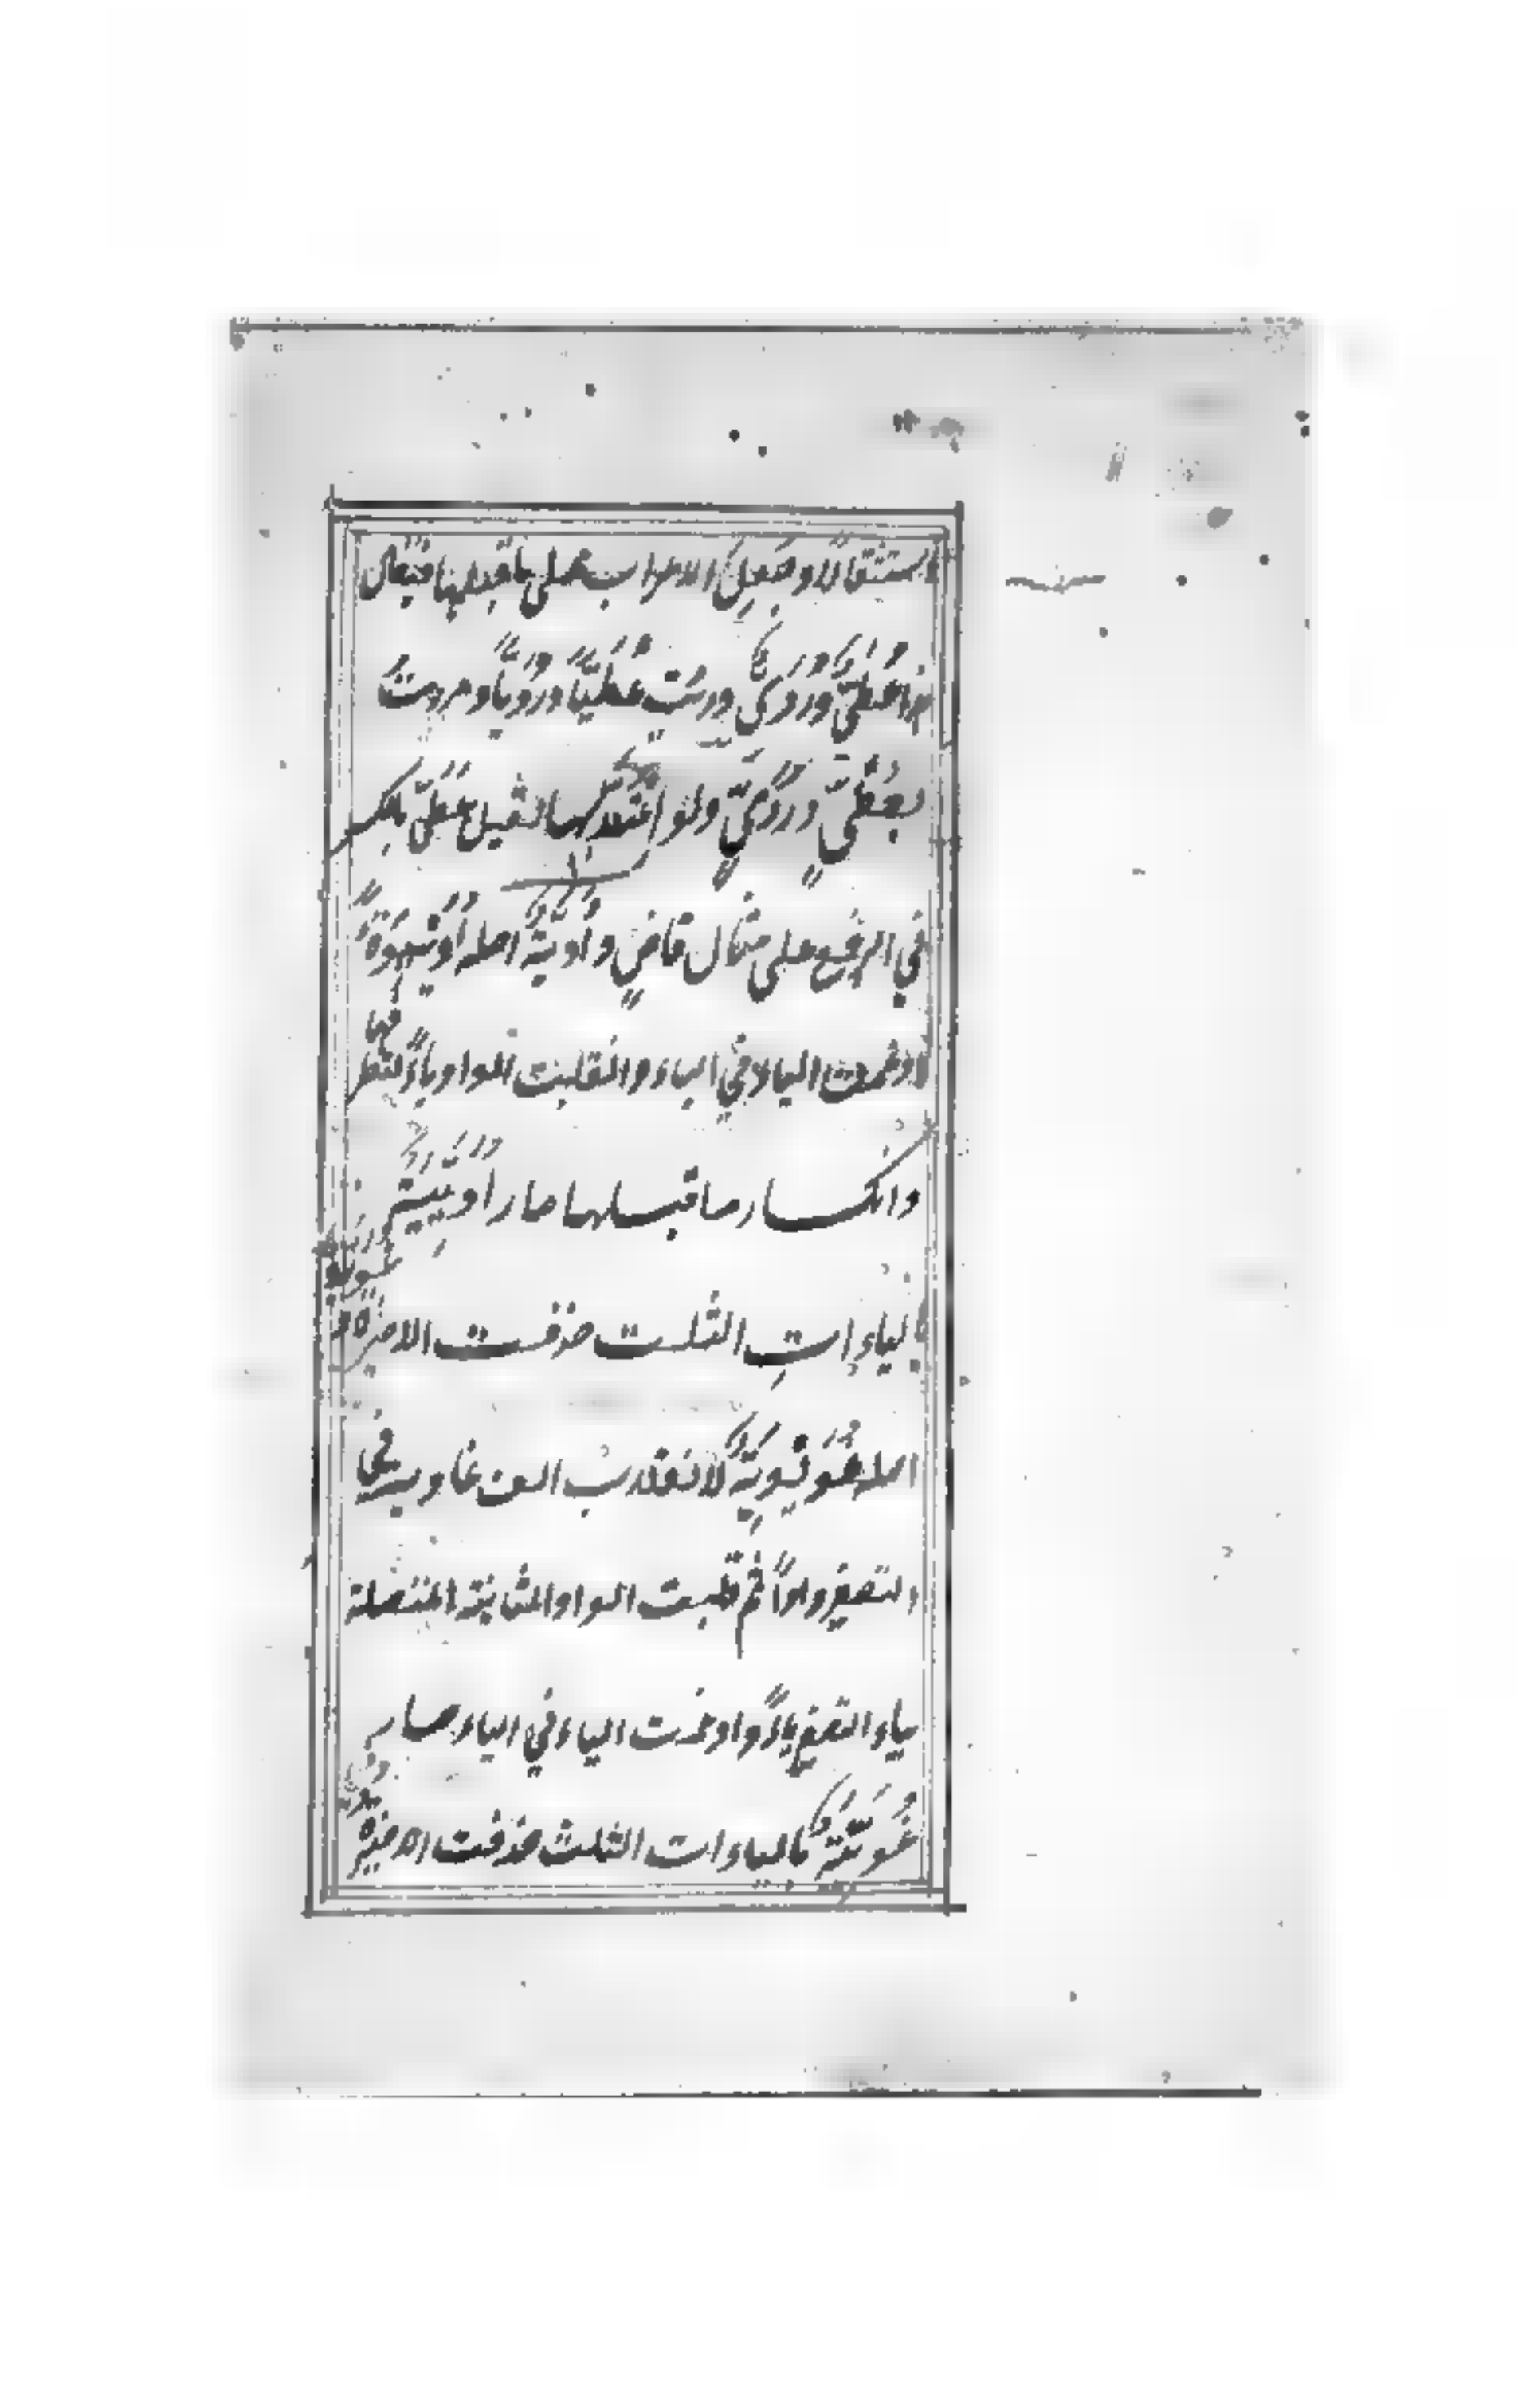 استثقالًا وجُعِلَ الاعراب على ما قبلها فيقال
هذا عُطَيٌّ ورُدَيٌّ ورايت عُطَيًّا ورُدَيًّا ومررت
بعُطَيٍّ ورُدَيٍّ ولو لقيل عُطَيٍّ بالكسر
في الرفع على مثال قاضٍ واُدَيَّةٌ اصله اُدَيْوِةٌ
ادغمت الياء في الياء وانقلبت الواو ياءً لتطرفها
وانكسار ما قبلها صار اُدَيِّيَةٌ
بالياءاتِ الثلث حذفت الاخيرة
اصله غُوَيْوِيَةٌ لانقلاب الف غاوية في
التصغير واوًا ثم قلبت الواو الثانية المتصلة
بياء التصغير ياءً وادغمت الياء في الياء صار
غُوَيِّيَةٌ بالياءات الثلث حذفت الاخيرة